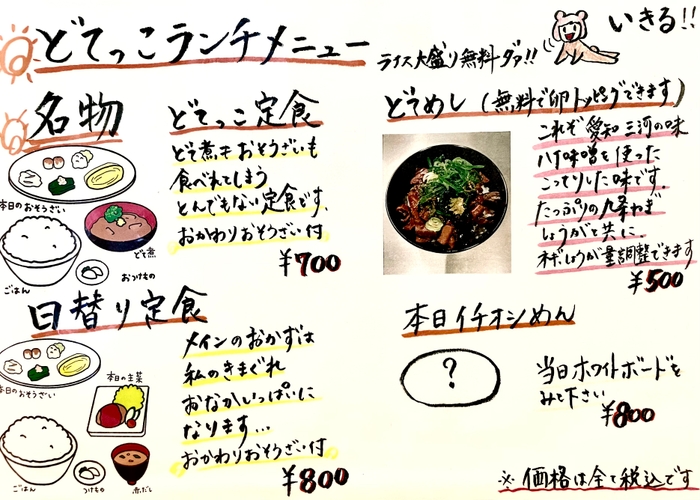 どてっこランチメニュー
ライス大盛り無料ダァ!!
いきる!!
名物
どてっこ定食
どて煮もおそうざいも
食べれてしまう
とんでもない定食です。
おかわりおそうざい付
¥700
本日のおそうざい
どて煮
ごはん
おつけもの
どてめし(無料で卵トッピングできます)
これぞ愛知三河の味
八丁味噌を使った
こってりした味です。
たっぷりの九条ねぎ
しょうがと共に。
ネギしょうが量調整できます
¥500
日替り定食
メインのおかずは
私のきまぐれ
おなかいっぱいに
なります...
おかわりおそうざい付
¥800
本日のおそうざい
本日の主菜
ごはん
つけもの
赤だし
本日イチオシめん
?
当日ホワイトボードを
みて下さい
¥800
※価格は全て税込です